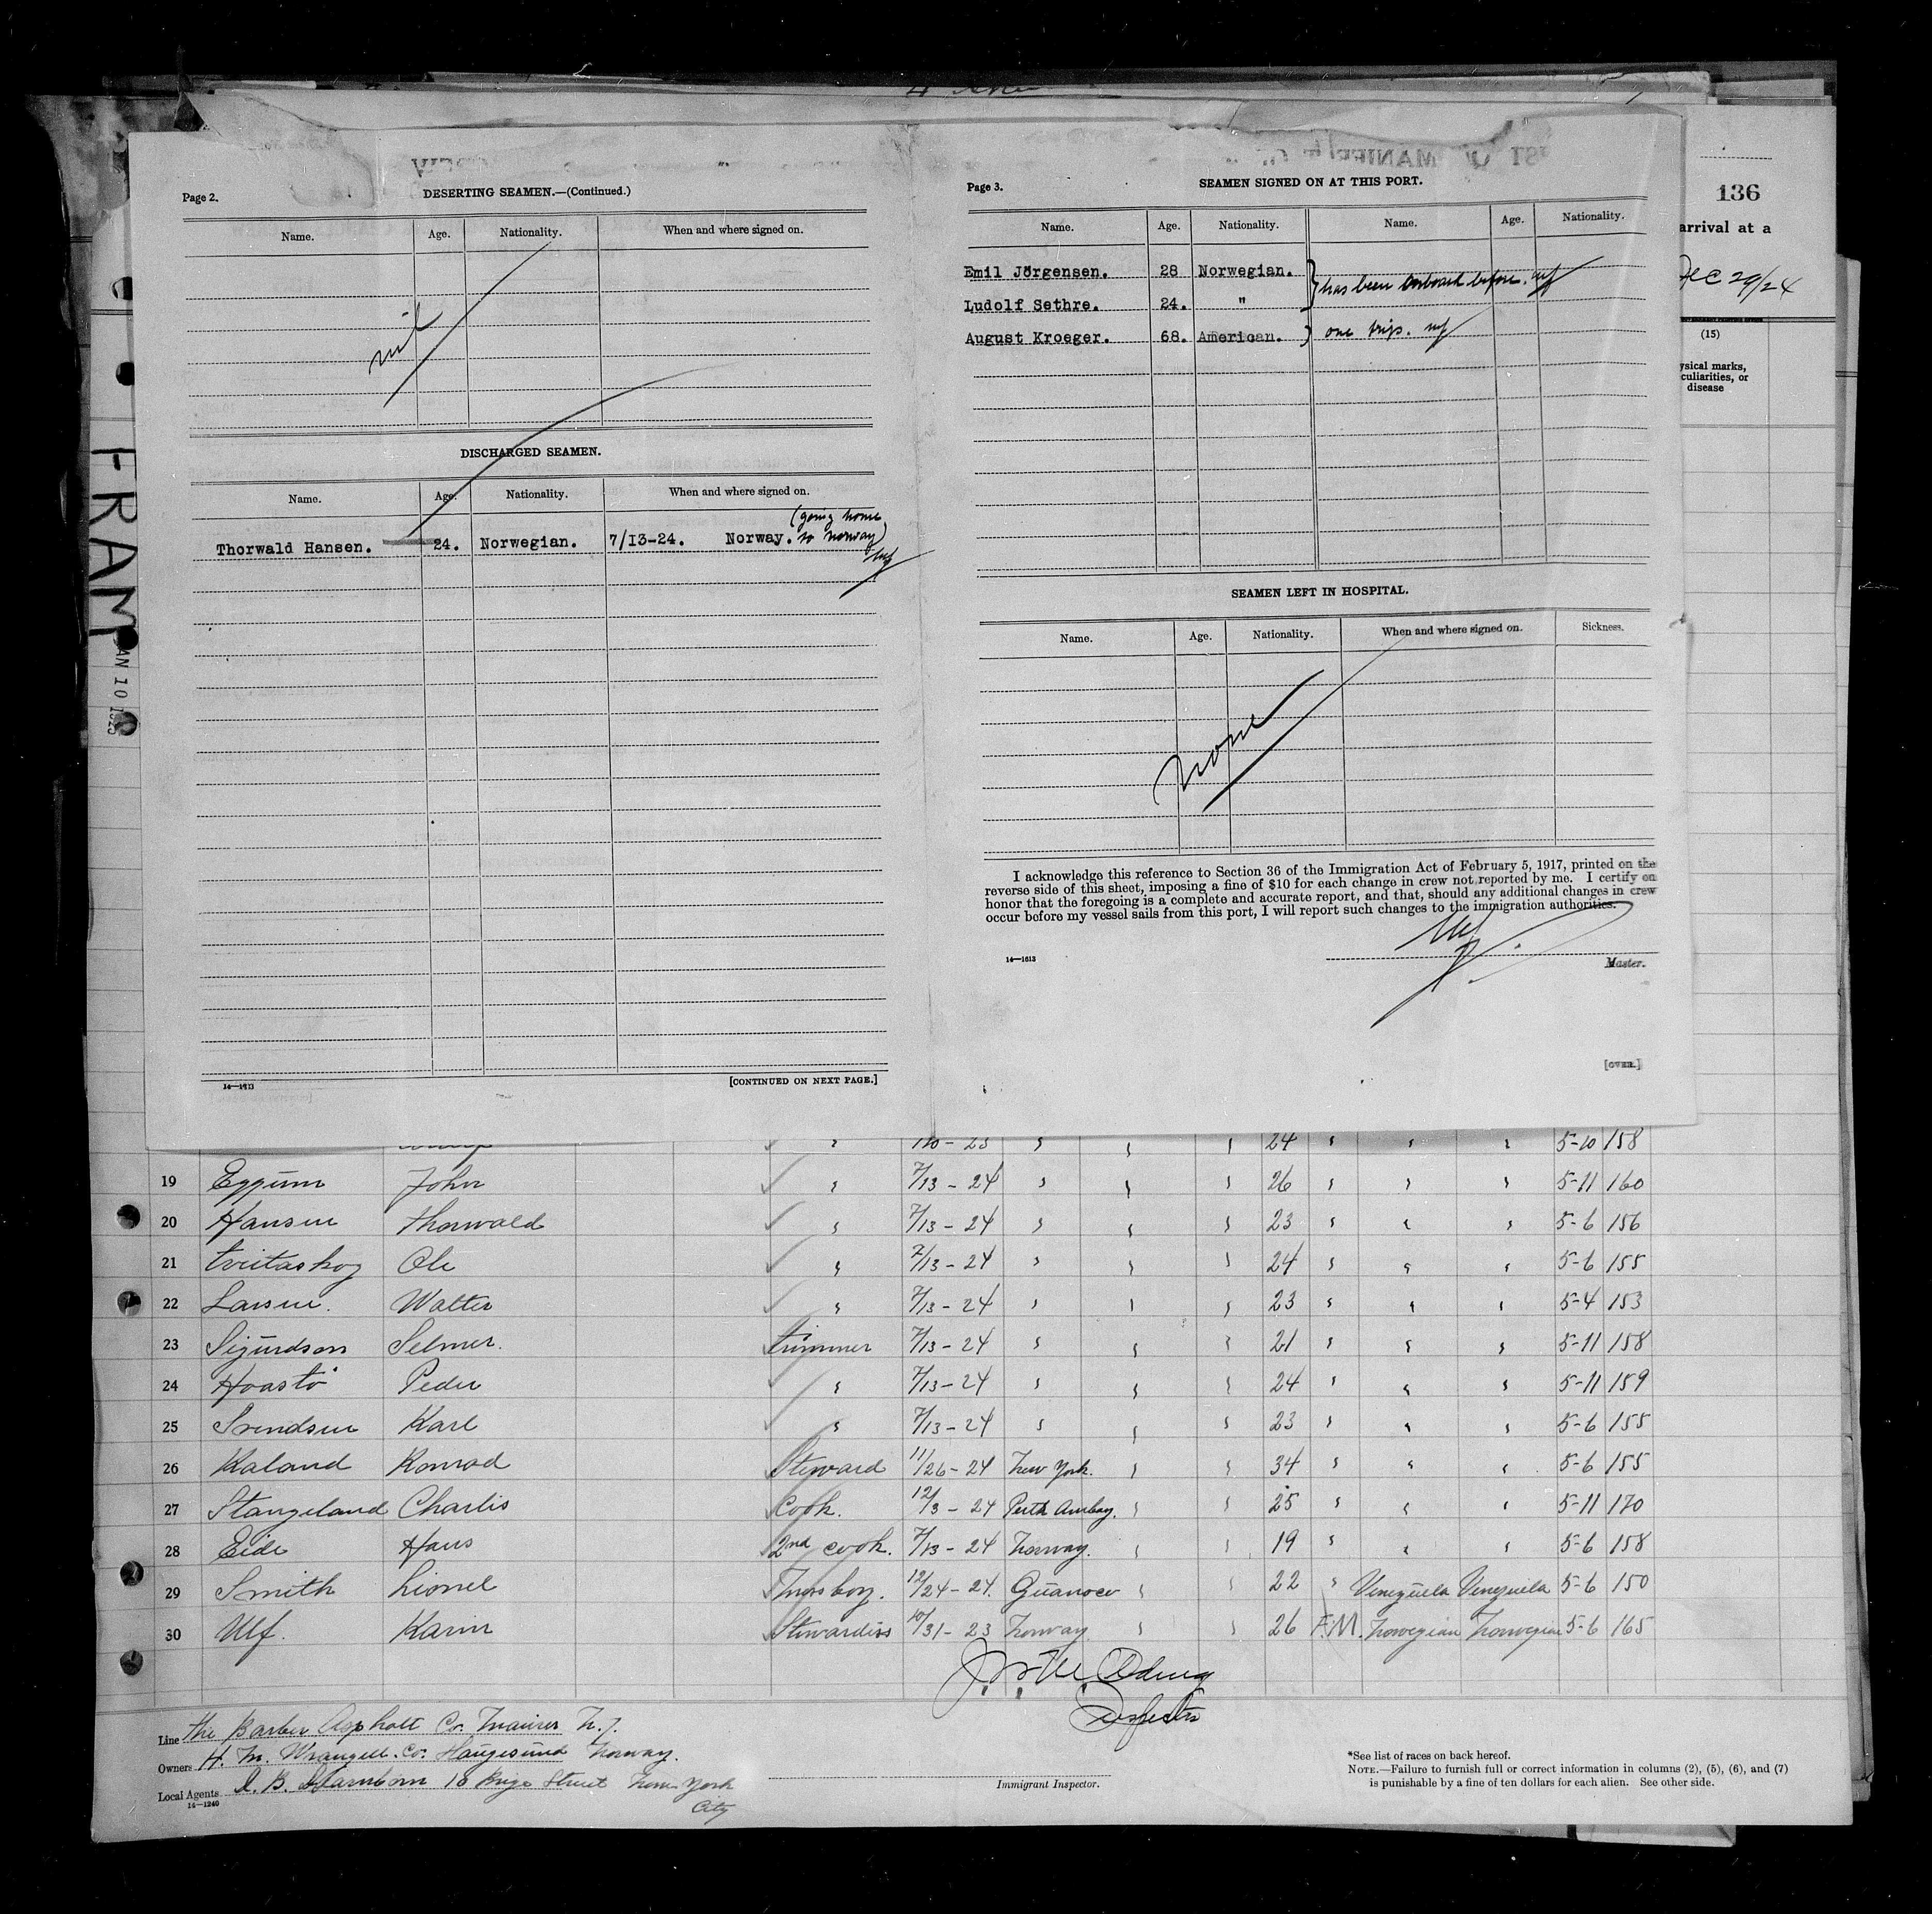 Page 2.
DESERTING SEAMEN.—(Continued.)
Name. Age. Nationality. When and where signed on.
nil
DISCHARGED SEAMEN.
Name. Age. Nationality. When and where signed on.
Thorwald Hansen. 24. Norwegian. 7/13-24. Norway. (going home to norway)
14—1613
[CONTINUED ON NEXT PAGE.]
Page 3.
SEAMEN SIGNED ON AT THIS PORT.
Name. Age. Nationality. Name. Age. Nationality.
Emil Jörgensen. 28 Norwegian.
has been onboard before.
Ludolf Sethre. 24. "
August Kroeger. 68. American. one trip.
SEAMEN LEFT IN HOSPITAL.
Name. Age. Nationality. When and where signed on. Sickness.
none
I acknowledge this reference to Section 36 of the Immigration Act of February 5, 1917, printed on the
reverse side of this sheet, imposing a fine of $10 for each change in crew not reported by me. I certify on
honor that the foregoing is a complete and accurate report, and that, should any additional changes in crew
occur before my vessel sails from this port, I will report such changes to the immigration authorities.
14—1613
Master.
[OVER.]
136
arrival at a
Dec 29/24
(15)
ysical marks,
culiarities, or
disease
FRAM
AN 10 1925
24 " " " 5-10 158
19 Eggum John " 7/13-24 " " " 26 " " " 5-11 160
20 Hansen Thorwald " 7/13-24 " " " 23 " " " 5-6 156
21 Ole " 7/13-24 " " " 24 " " " 5-6 155
22 Larsen. Walter " 7/13-24 " " " 23 " " " 5-4 153
23 Sigurdson Selmer. Trimmer 7/13-24 " " " 21 " " " 5-11 158
24 Hoastö Peder " 7/13-24 " " " 24 " " " 5-11 159
25 Svendsen Karl " 7/13-24 " " " 23 " " " 5-6 155
26 Kaland Konrad Steward 11/26-24 New York. " " 34 " " " 5-6 155
27 Stangeland Charlis Cook. 12/3-24 Perth Amboy. " " 25 " " " 5-11 170
28 Eide Hans 2nd cook. 7/13-24 Norway. " " 19 " " " 5-6 158
29 Smith Lionel Messboy. 12/24-24. Guanoco " " 22 " Venezuela Venezuela 5-6 150
30 Ulf. Karin Stewardiss 10/31-23 Norway " " 26 F.M. Norwegian Norwegian 5-6 165
Line The Barber Asphalt Co. Maurer N.J.
Owners H. M. Wrangell. Co. Haugesund Norway.
Local Agents Street New York
City
14—1240
Immigrant Inspector.
*See list of races on back hereof.
NOTE.—Failure to furnish full or correct information in columns (2), (5), (6), and (7)
is punishable by a fine of ten dollars for each alien. See other side.